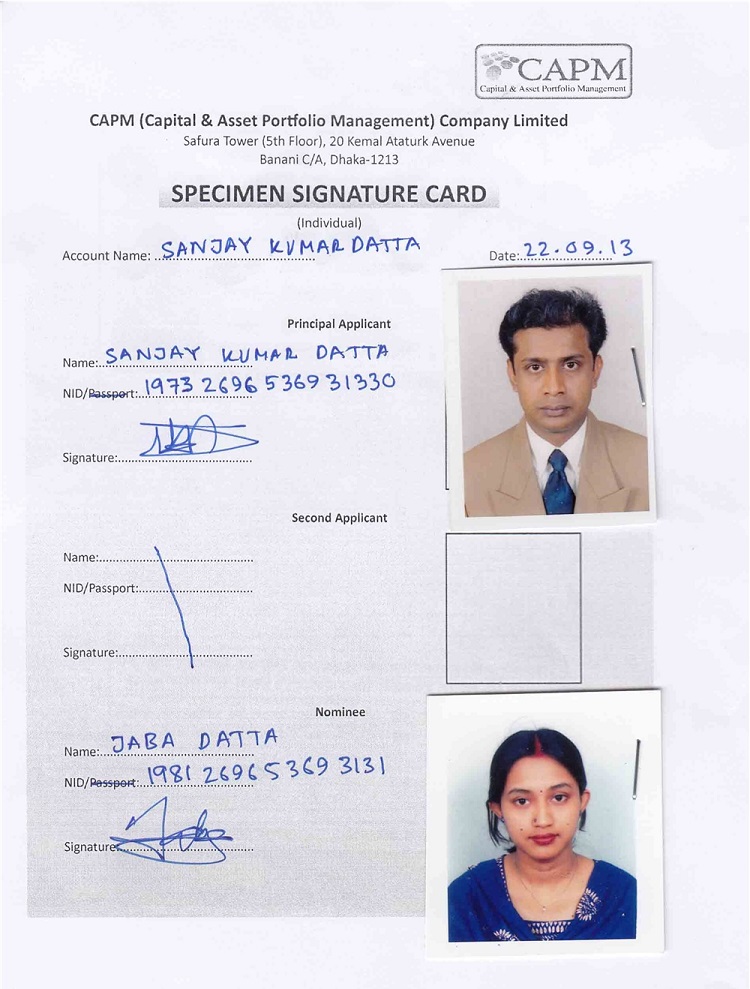 CAPM
Capital & Asset Portfolio Management
CAPM (Capital & Asset Portfolio Management) Company Limited
Safura Tower (5th Floor), 20 Kemal Ataturk Avenue
Banani C/A, Dhaka-1213
SPECIMEN SIGNATURE CARD
(Individual)
Account Name: SANJAY KUMAR DATTA Date: 22.09.13
Principal Applicant
Name: SANJAY KUMAR DATTA
NID/Passport: 19732696536931330
Signature:
Second Applicant
Name:
NID/Passport:
Signature:
Nominee
Name: JABA DATTA
NID/Passport: 1981 2696 5369 3131
Signature: